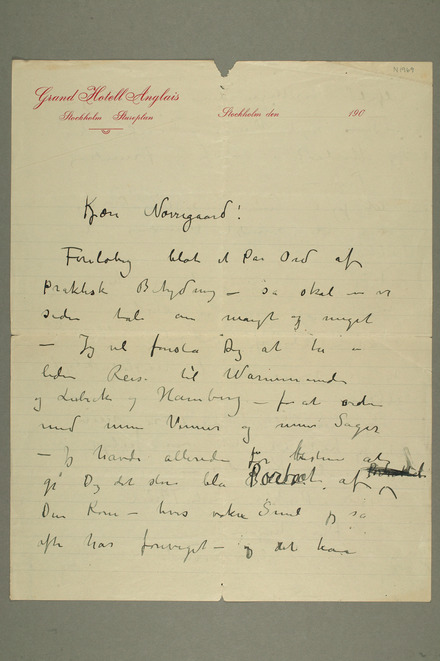 N 1969
Grand Hotell Anglais
Stockholm Stureplan
Stockholm den 190
Kjære Nörregaard!
Foreløbig blot et Par Ord af
praktisk Betydning – så skal vi
siden tale om mangt og meget
– Jeg vil foreslå Dig at ta en
liden Reise til Warnemünde
og Lubeck og Hamburg – for at ordne
med mine Venner og mine Sager
– Jeg havde allerede for bestemt at
gi Dig det store blå Portræt af
Din Kone – hvis ydre Sind jeg så
ofte har forurettet – og det kan